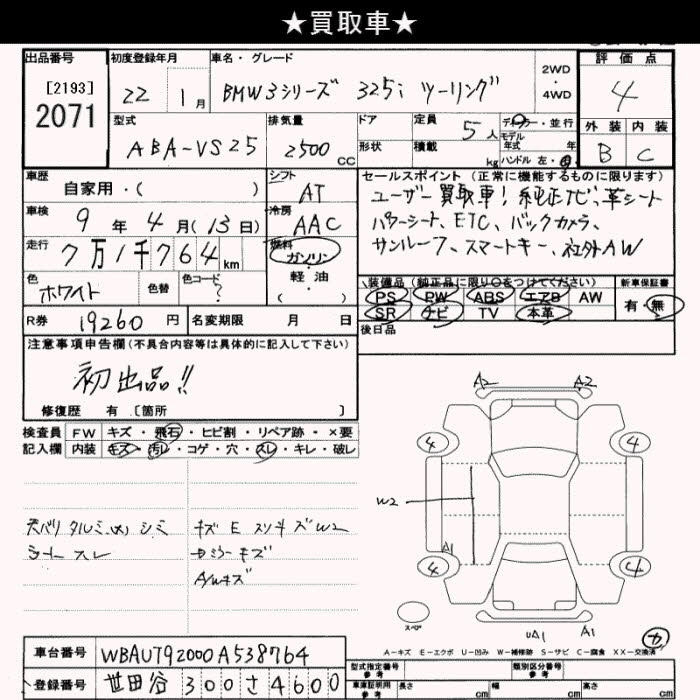 ★買取車★
出品番号 初度登録年月 車名・グレード 評価点
[2193] 2071
22 1月 BMW3シリーズ 325i ツーリング 2WD・4WD 4
型式 排気量 ドア 定員 5人 ディーラー・並行 外装 内装
ABA-VS25 2500cc 形状 積載 kg モデル年式 年 ハンドル 左・右 B C
車歴 シフト セールスポイント(正常に機能するものに限ります)
自家用・( ) AT ユーザー買取車!純正ナビ、革シート
車検 9年4月(13日) 冷房 AAC パワーシート、ETC、バックカメラ、
走行 7万1千764km 燃料 ガソリン・軽油・( ) サンルーフ、スマートキー、社外AW
色 ホワイト 色替 色コード ? 装備品(純正品に限り○をつけてください) 新車保証書
PS PW ABS エアB AW 有・無
SR ナビ TV 本革
R券 19260円 名変期限 月 日 後日品
注意事項申告欄(不具合内容等は具体的に記入して下さい)
初出品!!
修復歴 有 [箇所 ]
検査員 FW キズ・飛石・ヒビ割・リペア跡・×要
記入欄 内装 キズ・汚レ・コゲ・穴・スレ・キレ・破レ
天バリタルミ シミ
シート スレ
キズ E スリキズ W2
ミラーキズ
A/Wキズ
A2 A2
4 4
W2
A1
4 4
スペア UA1 A1 カ
A―キズ E―エクボ U―凹み W―補修跡 S―サビ C―腐食 XX―交換済
車台番号 WBAUT92000A538764
登録番号 世田谷 300 さ 4600
型式指定番号 参考 類別区分番号 参考
車庫証明用 参考 長さ cm 幅 cm 高さ cm